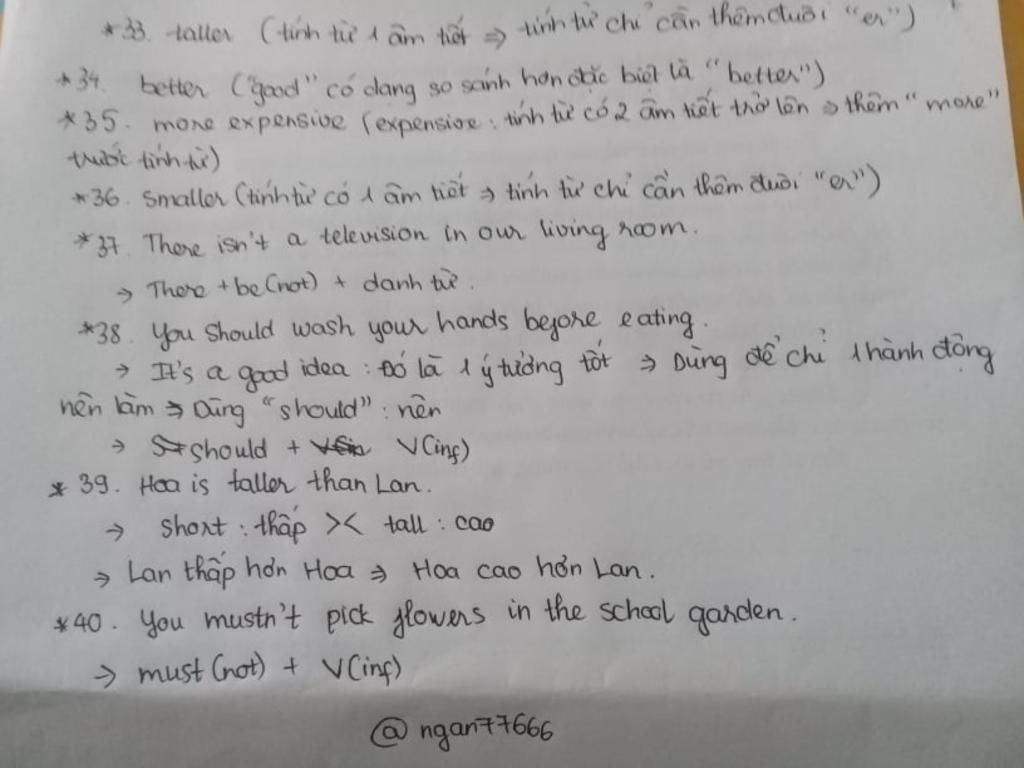 *33. taller (tính từ 1 âm tiết => tính từ chỉ cần thêm đuôi "er")
*34. better ("good" có dạng so sánh hơn đặc biệt là "better")
*35. more expensive (expensive: tính từ có 2 âm tiết trở lên => thêm "more"
trước tính từ)
*36. Smaller (tính từ có 1 âm tiết => tính từ chỉ cần thêm đuôi "er")
*37. There isn't a television in our living room.
-> There + be(not) + danh từ.
*38. You Should wash your hands before eating.
-> It's a good idea: Đó là 1 ý tưởng tốt => Dùng để chỉ 1 hành động
nên làm => Dùng "should": nên
-> should + V(inf)
* 39. Hoa is taller than Lan.
-> Short: thấp >< tall: cao
=> Lan thấp hơn Hoa => Hoa cao hơn Lan.
*40. You mustn't pick flowers in the school garden.
-> must(not) + V(inf)
@ngan77666